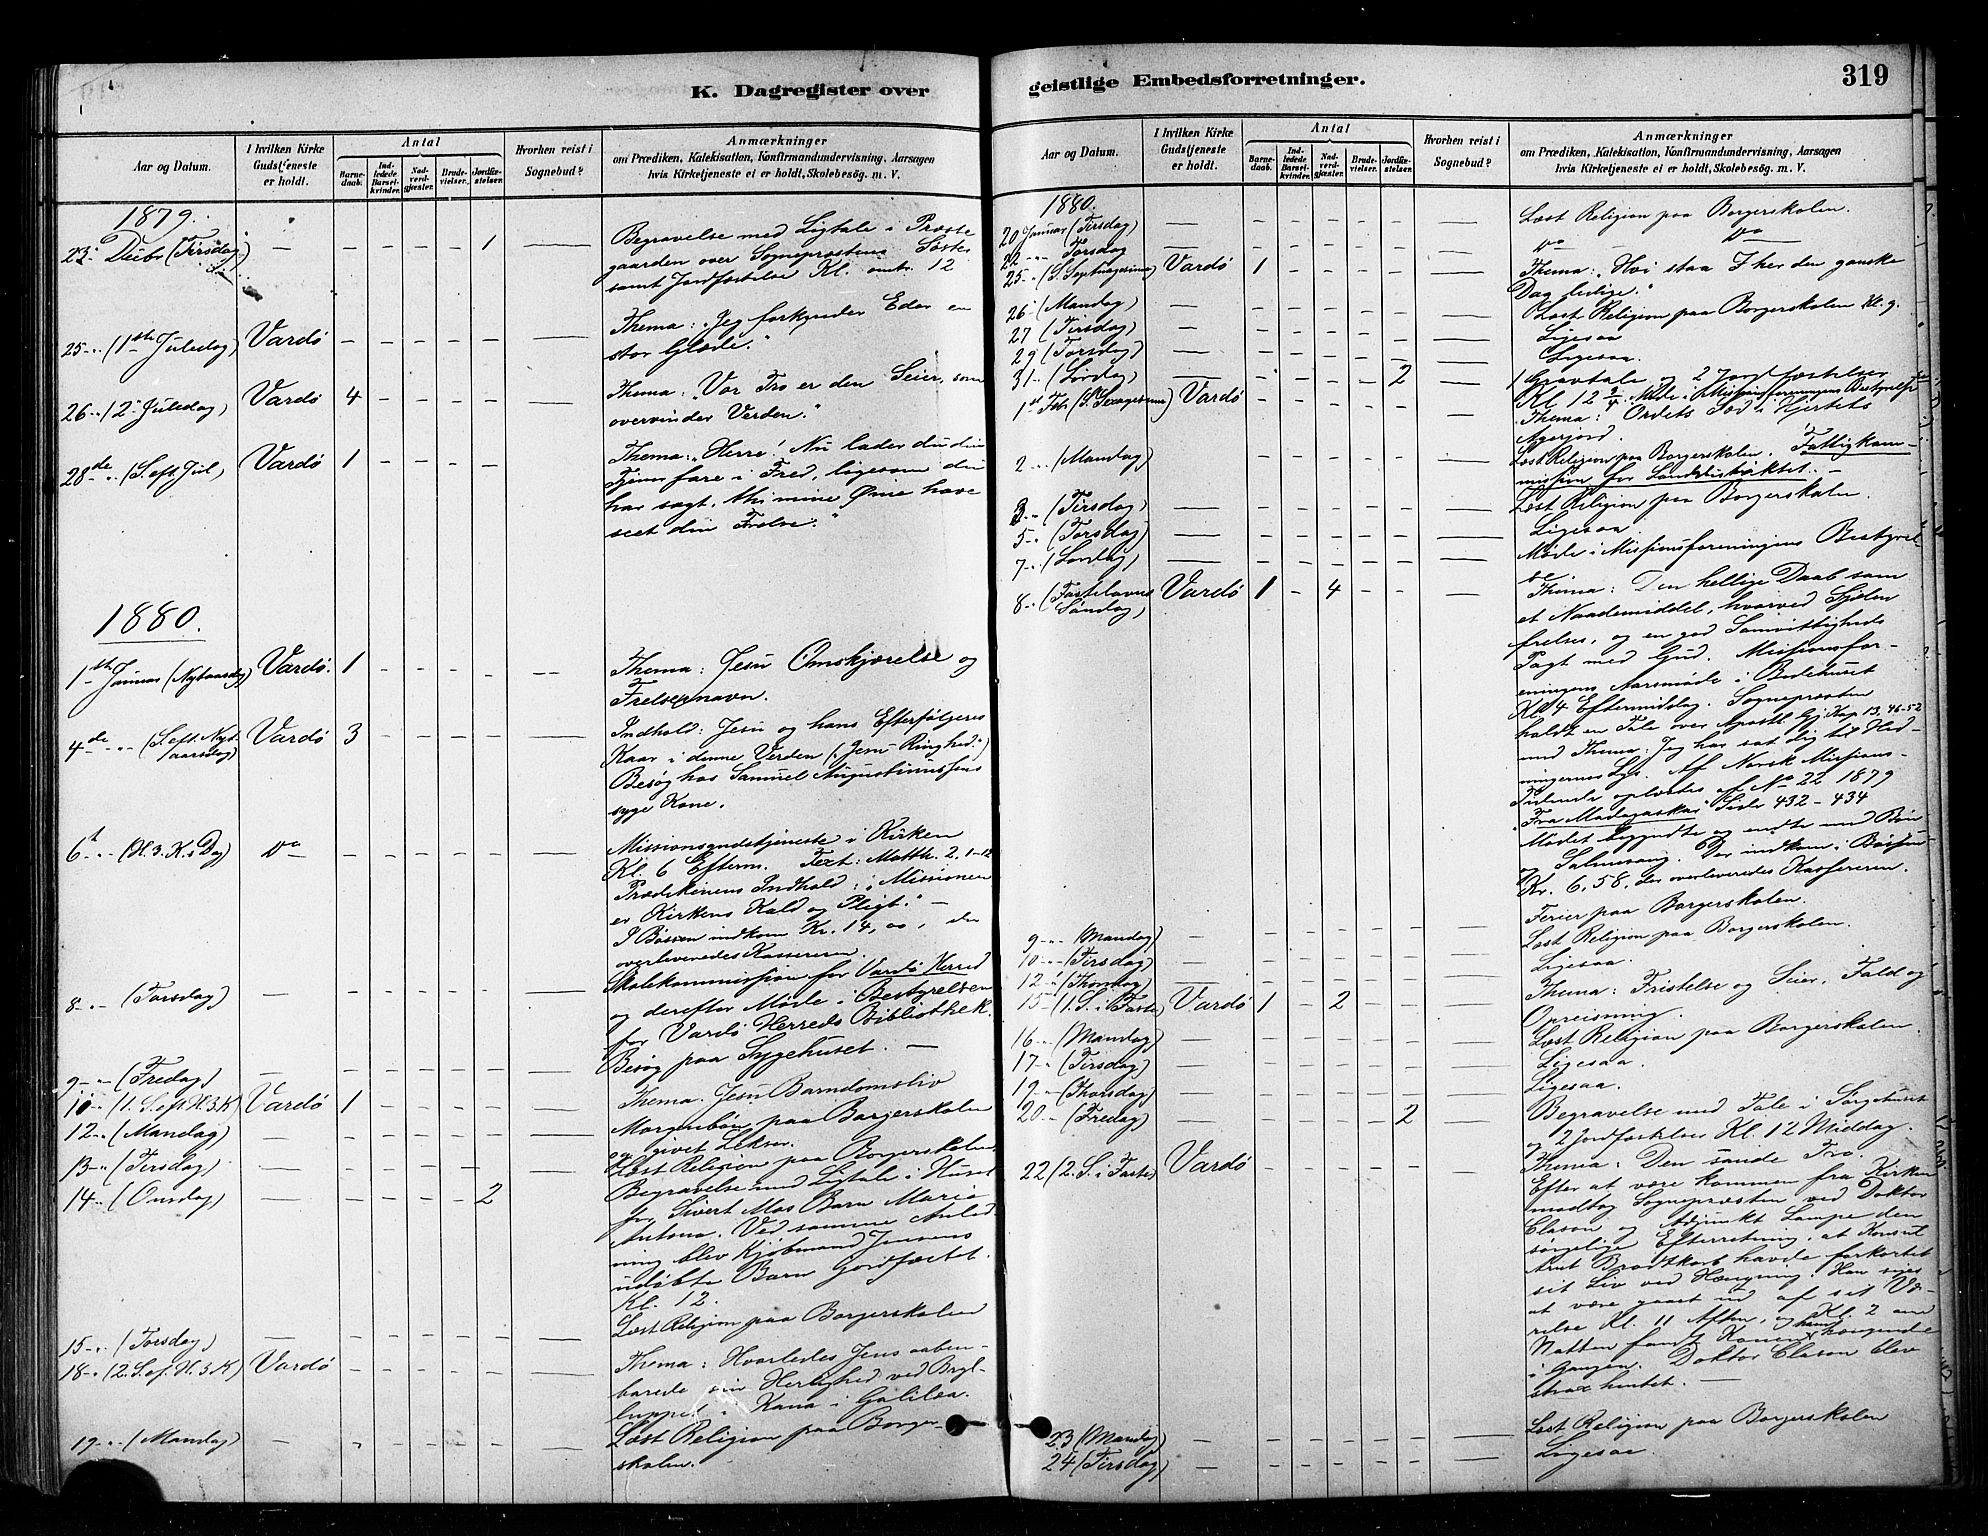 K. Dagregister over
Aar og Datum.
I hvilken Kirke Gudstjeneste er holdt.
Antal
Barnedaab.
Indledede Barselkvinder.
Nadverdgjester.
Brudevielser.
Jordfæstelser.
Hvorhen reist i Sognebud?
Anmærkninger
om Prædiken, Katekisation, Konfirmandundervisning, Aarsagen
hvis Kirketjeneste ei er holdt, Skolebesøg. m. V.
1879.
23. Decbr (Tirsdag) — — — — — 1 — Begravelse med Ligtale i Præste
gaarden over Sogneprestens Søster
samt Jordfæstelse Kl. omtr. 12
25 " (1ste Juledag) Vardö — — — — — — Thema: "Jeg forkynder Eder en
stor Glæde."
26 " (2 Juledag) Vardö 4 — — — — — Thema: "Vor Tro er den Seier, som
overvinder Verden."
28de " (S. eft. Jul) Vardö 1 — — — — — Thema: "Herre! Nu lader du din
Tjener fare i Fred, ligesom du
har sagt, thi mine Øine have
seet din Frelse."
1880.
1ste Januar (Nytaarsdag) Vardö. 1 — — — — — Thema: Jesu Omskjærelse og
Frelsernavn.
4de " (S. eft. Nyt-
aarsdag) Vardö 3 — — — — — Indhold: Jesu og hans Efterfølgeres
Kaar i denne Verden ("Jesu Ringhed.")
Besøg hos Samuel Augustinussens
syge Kone.
6te " (H. 3. K. Dag) Do — — — — — — Missionsgudstjeneste i Kirken
Kl. 6 Efterm. Text: Matth. 2. 1-12
Prædikenens Indhold: "Missionen
er Kirkens Kald og Pligt." —
I Bøssen indkom Kr. 14,00, der
overleveredes Kassereren.
8 " (Torsdag) — — — — — — — Skolekommission for Vardö Herred
og derefter Møde i Bestyrelsen
for Vardö Herreds Bibliothek.
9 " (Fredag) — Besøg paa Sygehuset. —
10 " (1. S. eft. H. 3. K) Vardö 1 — — — — — Thema: Jesu Barndomsliv
12 " (Mandag) — — — — — — Morgenbøn paa Borgerskolen
og givet Lekser.
13 " (Tirsdag) — — — — — — Læst Religion paa Borgerskolen
14 " (Onsdag) — — — — 2 — Begravelse med Ligtale i Huset
for Sivert Mos Barn Maria
Antona. Ved samme Anled-
ning blev Kjøbmand Jensens
udøbte Barn jordfæstt.
Kl. 12.
15 " (Torsdag) — — — — — — — Læst Religion paa Borgerskolen
18 " (2. S. ef. H. 3. K) Vardö — — — — — — Thema: Hvorledes Jesus aaben-
barede sin Herlighed ved Bryl-
luppet i Kana i Galilæa.
19 " (Mandag) — — — — — — — Læst Religion paa Borger-
skolen.
geistlige Embedsforretninger.
319
Aar og Datum.
I hvilken Kirke Gudstjeneste er holdt.
Antal
Barnedaab.
Indledede Barselkvinder.
Nadverdgjester.
Brudevielser.
Jordfæstelser.
Hvorhen reist i Sognebud?
Anmærkninger
om Prædiken, Katekisation, Konfirmandundervisning, Aarsagen
hvis Kirketjeneste ei er holdt, Skolebesøg. m. V.
1880.
20 Januar (Tirsdag) — — — — — — — Læst Religion paa Borgerskolen.
22 " Torsdag — — — — — — — Do Do
25 " (S. Septuagesima) Vardö 1 — — — — — Thema: "Hvi staa I her den ganske
Dag ledige."
26 (Mandag) — — — — — — — Læst Religion paa Borgerskolen Kl. 9.
27 (Tirsdag) — — — — — — — Ligesaa
29 (Torsdag) — — — — — — — Ligesaa.
31 " (Lørdag) — — — — — 2 — 1 Gravtale og 2 Jordfæstelser
Kl 12 3/4. Møde i Missionsforeningens Bestyrelse
1ste Feb (S. Sexagesima) Vardö — — — — — — Thema: Ordets Sæd i Hjertets
Agerjord.
2 " (Mandag) — — — — — — Læst Religion paa Borgerskolen. Fattigkom-
mission for Landdistriktet. —
3 " (Tirsdag) — — — — — — — Læst Religion paa Borgerskolen.
5 " (Torsdag) — — — — — — — Ligesaa
7 " (Lørdag) — — — — — — — Møde i Missionsforeningens Bestyrel-
se
8 " (Fastelavns
Søndag) Vardö 1 — 4 — — — Thema: Den hellige Daab som
et Naademiddel, hvorved Sjælen
frelses, og en god Samvittigheds
Pagt med Gud. Missionsfor-
eningens Aarsmøde i Bedehuset
Kl. 4 Eftermiddag. Sognepresten
holdt en Tale over Apostl. Gj. Kap 13, 46-52
med Thema: Jeg har sat dig til Hed-
ningernes Lys. Af Norsk Missions-
tidende oplæstes af No 22 1879
"Fra Madagaskar" Side 432-434
Mødet begyndte og endte med Bøn
og Salmesang. Der indkom i Bøssen
Kr. 6,58, der overleveredes Kassereren.
9 " (Mandag) — — — — — — — Ferier paa Borgerskolen.
10 " (Tirsdag) — — — — — — — Læst Religion paa Borgerskolen.
12 " (Thorsdag) — — — — — — — Ligesaa.
15 " (1. S. i Faste) Vardö 1 — 2 — — — Thema: Fristelse og Seier, Fald og
Opreisning.
16 " (Mandag) — — — — — — — Læst Religion paa Borgerskolen.
17 " (Tirsdag) — — — — — — — Ligesaa.
19 " (Thorsdag) — — — — — — — Ligesaa.
20 " (Fredag) — — — — — 2 — Begravelse med Tale i Sørgehuset
og 2 Jordfæstelser Kl. 12 Middag.
22 (2. S. i Faste) Vardö — — — — — — Thema: Den sande Tro.
Efter at være kommen fra Kirken
modtog Sognepresten ved Doktor
Clason og Adjunkt Lampe den
sørgelige Efterretning, at Konsul
Arnt Brodtkorb havde forkortet
sit Liv ved Hængning. Han siges
at være gaaet ud af sit Væ-
relse Kl. 11 Aften, og Kl. 2 om
Natten fandt Konen ham hængende
i Gangen. Doktor Clason blev
strax hentet. —
23 (Mandag) — — — — — — — Læst Religion paa Borgerskolen
24 (Tirsdag) — — — — — — — Ligesaa.